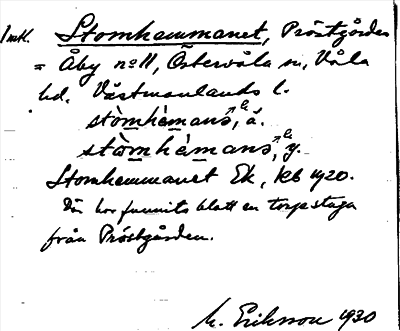 Inkl. Stomhemmanet, Prästgårdes
= Åby nº 11, Östervåla sn, Våla
hd. Västmanlands l.
stòmhèmanə, ä.
stòmhèmanə, y.
Stomhemmanet Ek, kb 1920.
Där har funnits blott en torpstuga
från Prästgården.
M. Eriksson 1930